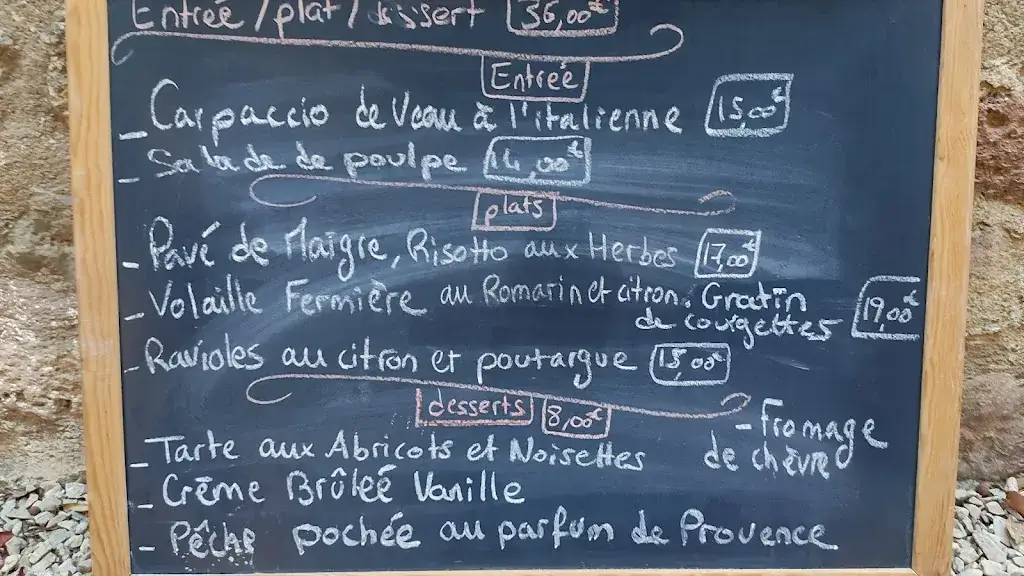 Entrée/plat/dessert 36,00€
Entrée
- Carpaccio de Veau à l'italienne 15,00€
- Salade de poulpe 14,00€
plats
- Pavé de Maigre, Risotto aux Herbes 17,00€
- Volaille Fermière au Romarin et citron. Gratin
de courgettes 19,00€
- Ravioles au citron et poutargue 15,00€
desserts 8,00€
- Fromage
de chèvre
- Tarte aux Abricots et Noisettes
- Crème Brûlée Vanille
- Pêche pochée au parfum de Provence